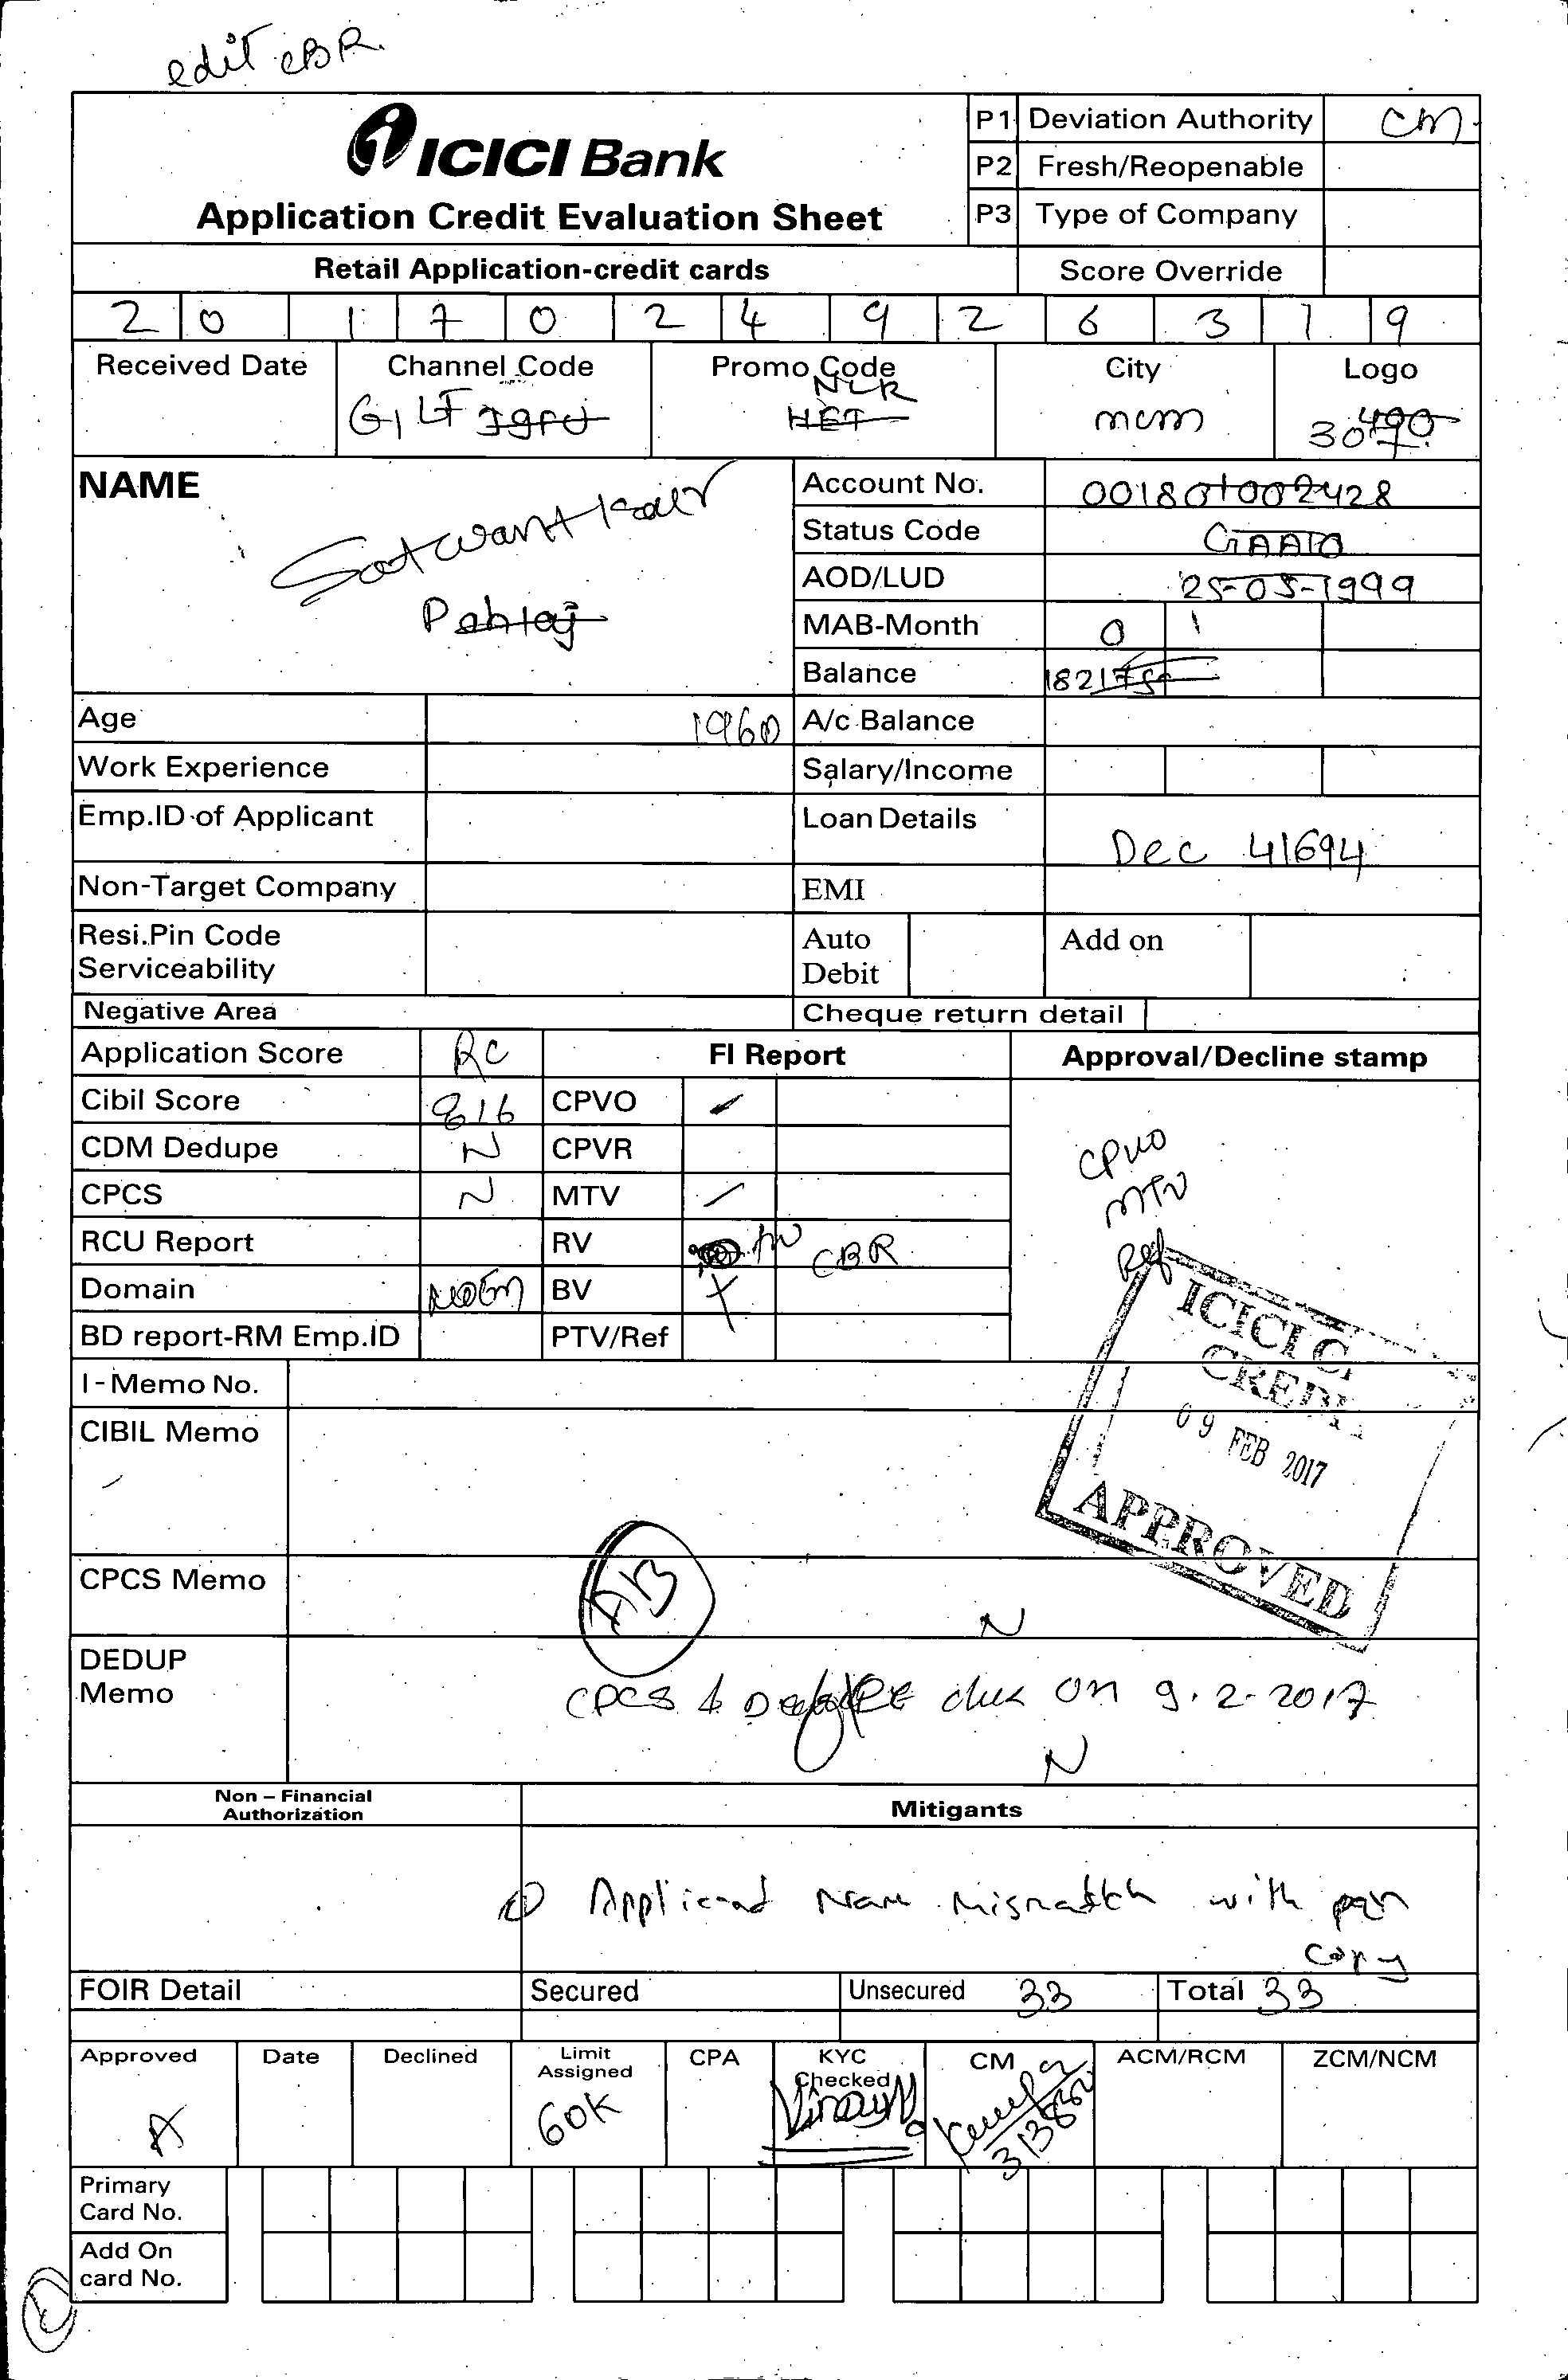 edit CBR
ICICI Bank
Application Credit Evaluation Sheet
P1 Deviation Authority CM
P2 Fresh/Reopenable
P3 Type of Company
Retail Application-credit cards Score Override
2 0 1 7 0 2 4 9 2 6 3 1 9
Received Date Channel Code Promo Code City Logo
NLR
GILF HET mcm 30
NAME
Satwant Kaur
Account No. 001801002428
Status Code
AOD/LUD 25-05-1999
MAB-Month 0 1
Balance
Age 1960 A/c Balance
Work Experience Salary/Income
Emp.ID of Applicant Loan Details
Dec 41694
Non-Target Company EMI
Resi.Pin Code Auto Add on
Serviceability Debit
Negative Area Cheque return detail
Application Score RC FI Report Approval/Decline stamp
Cibil Score 816 CPVO
CDM Dedupe N CPVR CPVO
CPCS N MTV MTV
RCU Report RV CBR Ref
Domain BV
BD report-RM Emp.ID PTV/Ref
ICICI
CREDI
09 FEB 2017
APPROVED
I-Memo No.
CIBIL Memo
CPCS Memo N
DEDUP
Memo
CPCS & on 9.2.2017
N
Non – Financial
Authorization
Mitigants
Name Mismatch with pan
copy
FOIR Detail Secured Unsecured 33 Total 33
Approved Date Declined Limit Assigned CPA KYC Checked CM ACM/RCM ZCM/NCM
A 60K 313852
Primary
Card No.
Add On
card No.